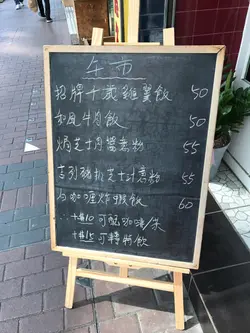 午市
招牌十歲組薑飯 50
和風牛肉飯 50
焗芝士肉醬意粉 55
吉列豬扒芝士汁意粉 55
白咖喱炸蝦飯 60
+$10 可配咖啡/茶
+$15 可轉特飲